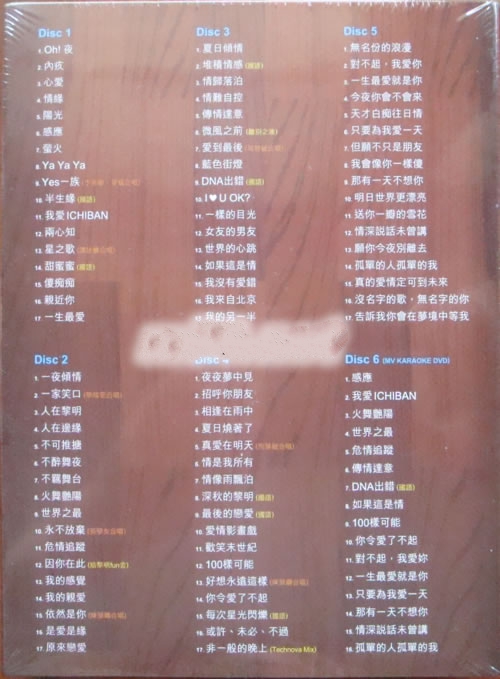 Disc 1
1. Oh! 夜
2. 內疚
3. 心愛
4. 情緣
5. 陽光
6. 感應
7. 螢火
8. Ya Ya Ya
9. Yes一族
10. 半生緣 (國語)
11. 我愛 ICHIBAN
12. 兩心知
13. 星之歌
14. 甜蜜蜜 (國語)
15. 傻痴痴
16. 親近你
17. 一生最愛
Disc 2
1. 一夜傾情
2. 一家笑口
3. 人在黎明
4. 人在邊緣
5. 不可推搪
6. 不醉舞夜
7. 不羈舞台
8. 火舞艷陽
9. 世界之最
10. 永不放棄
11. 危情追蹤
12. 因你在此 (給黎明fun言)
13. 我的感覺
14. 我的親愛
15. 依然是你
16. 是愛是緣
17. 原來戀愛
Disc 3
1. 夏日傾情
2. 堆積情感 (國語)
3. 情歸落泊
4. 情難自控
5. 傳情達意
6. 微風之前 (離別之後)
7. 愛到最後
8. 藍色街燈
9. DNA出錯 (國語)
10. I ♥ U OK?
11. 一樣的目光
12. 女友的男友
13. 世界的心跳
14. 如果這是情
15. 我沒有愛錯
16. 我來自北京
17. 我的另一半
Disc 4
1. 夜夜夢中見
2. 招呼你朋友
3. 相逢在雨中
4. 夏日燒著了
5. 真愛在明天
6. 情是我所有
7. 情像雨飄泊
8. 深秋的黎明 (國語)
9. 最後的戀愛 (國語)
10. 愛情影畫戲
11. 歡笑末世紀
12. 100樣可能
13. 好想永遠這樣
14. 你令愛了不起
15. 每次星光閃爍 (國語)
16. 或許、未必、不過
17. 非一般的晚上 (Technova Mix)
Disc 5
1. 無名份的浪漫
2. 對不起，我愛你
3. 一生最愛就是你
4. 今夜你會不會來
5. 天才白痴往日情
6. 只要為我愛一天
7. 但願不只是朋友
8. 我會像你一樣傻
9. 那有一天不想你
10. 明日世界更漂亮
11. 送你一瓣的雪花
12. 情深說話未曾講
13. 願你今夜別離去
14. 孤單的人孤單的我
15. 真的愛情定可到未來
16. 沒名字的歌，無名字的你
17. 告訴我你會在夢境中等我
Disc 6 (MV KARAOKE DVD)
1. 感應
2. 我愛ICHIBAN
3. 火舞艷陽
4. 世界之最
5. 危情追蹤
6. 傳情達意
7. DNA出錯 (國語)
8. 如果這是情
9. 100樣可能
10. 你令愛了不起
11. 對不起，我愛妳
12. 一生最愛就是你
13. 只要為我愛一天
14. 那有一天不想你
15. 情深説話未曾講
16. 孤單的人孤單的我